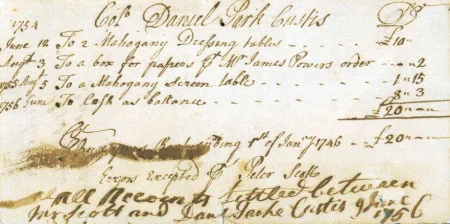 Colo. Daniel Park Custis Dr
1754
June 12 To 2 Mahogany Dressing tables - - - - £10
Augst 3 To a box for papers pr Mr James Powers order - - 2
1755 Augt 5 To a Mahogany screen table - - - - 1 " 15
1756 June To Cash as ballance - - - - 8 " 3
£20
ending 1st of Jany 1746 - - £20
Errors Excepted pr Peter Scott
all Accounts settled between
Mr Scott and Danl Parke Custis June
1756